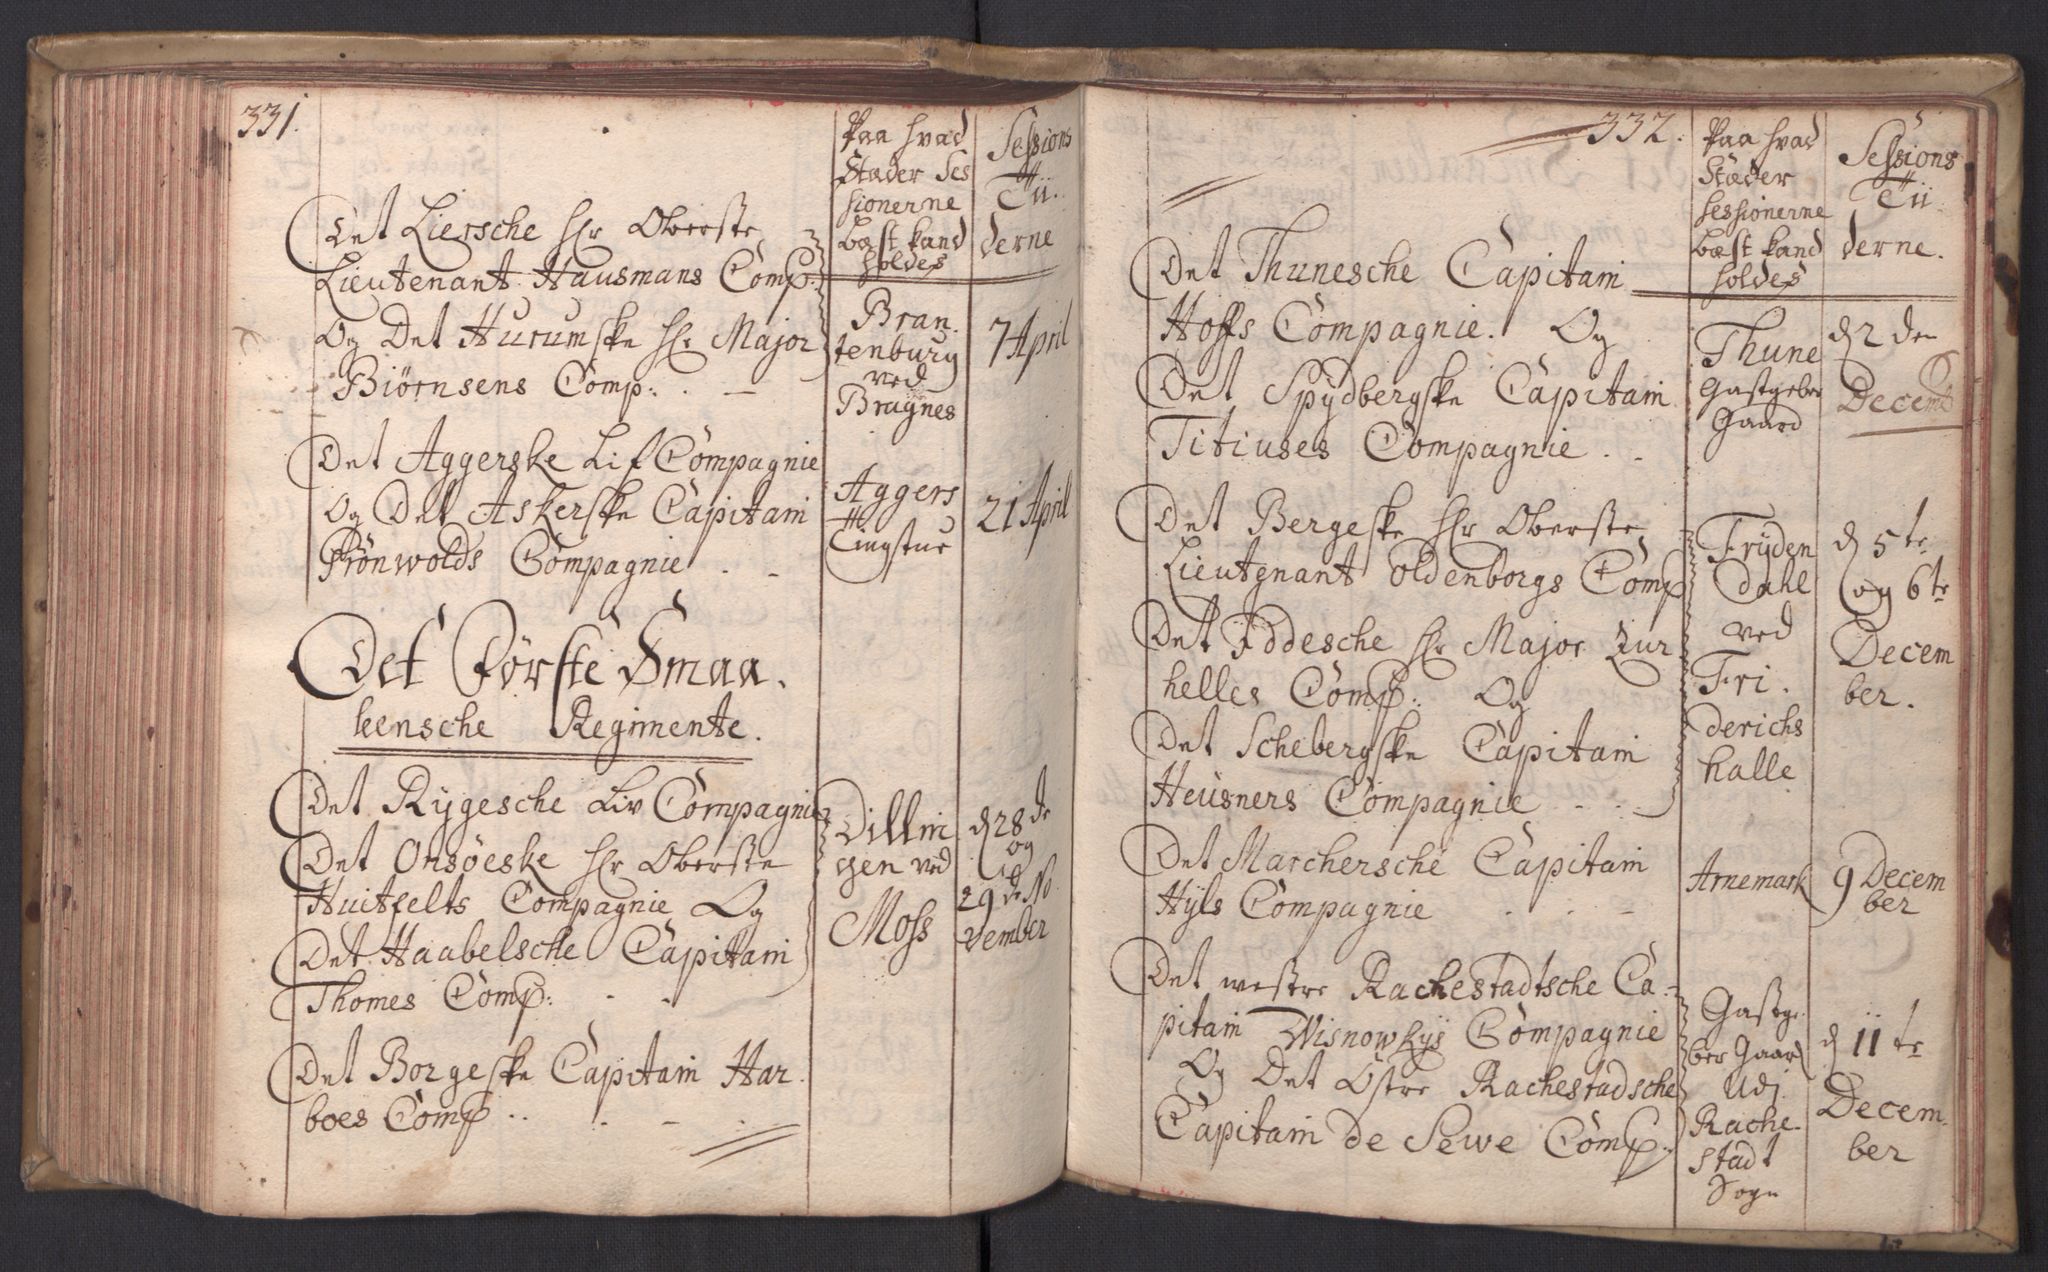 331.
Paa hvad
Stæder Ses
sionerne
bæst kand
holdes
Sessions
Tii
derne
Det Liersche Hr Oberste
Lieutenant Hausmans Comp:
Og Det Hurumske Hr Major
Biørnsens Comp: . –
Bran.
tenburg
ved
Bragnes
7 April
Det Aggerske Lif Compagnie
Og Det Askerske Capitain
Prönwolds Compagnie . -
Aggers
Tingstue
21 April
Det Første Smaa.
leensche Regimente.
Det Rygesche Liv Compagnie
Det Onsøeske Hr Oberste
Huitfelts Compagnie Og
Det Haabelsche Capitain
Thomes Comp: - -
Dillin
gen ved
Moss
d 28 de
og
29 de No
vember
Det Borgeske Capitain Har.
boes Comp . . . -
332.
Paa hvad
Stæder
sessionerne
bæst kand
holdes
Sessions
Tii
derne.
Det Thunesche Capitain
Hoffs Compagnie. Og
Det Spydbergske Capitain
Titiuses Compagnie . -
Thune
Gastgeber
Gaard
d 2 den
Decemb
Det Bergeske Hr Oberste
Lieutenant Oldenborgs Comp
Det Iddesche Hr Major Zur
helles Comp: Og
Det Schebergske Capitain
Heusners Compagnie - - -
Fryden
dahl
ved
Fri.
derichs
halle
d 5 te
og 6 te
Decem
ber.
Det Marchersche Capitain
Hyls Compagnie - - -
Arnemark
9 Decem
ber
Det westre Rachestadtsche Ca-
pitain Wisnowskys Compagnie
Og Det Östre Rachestadsche
Capitain de Sewe Comp:
Gastge
ber Gaard
Udj
Rache-
stadt
Sogn
d 11 te
Decem
ber